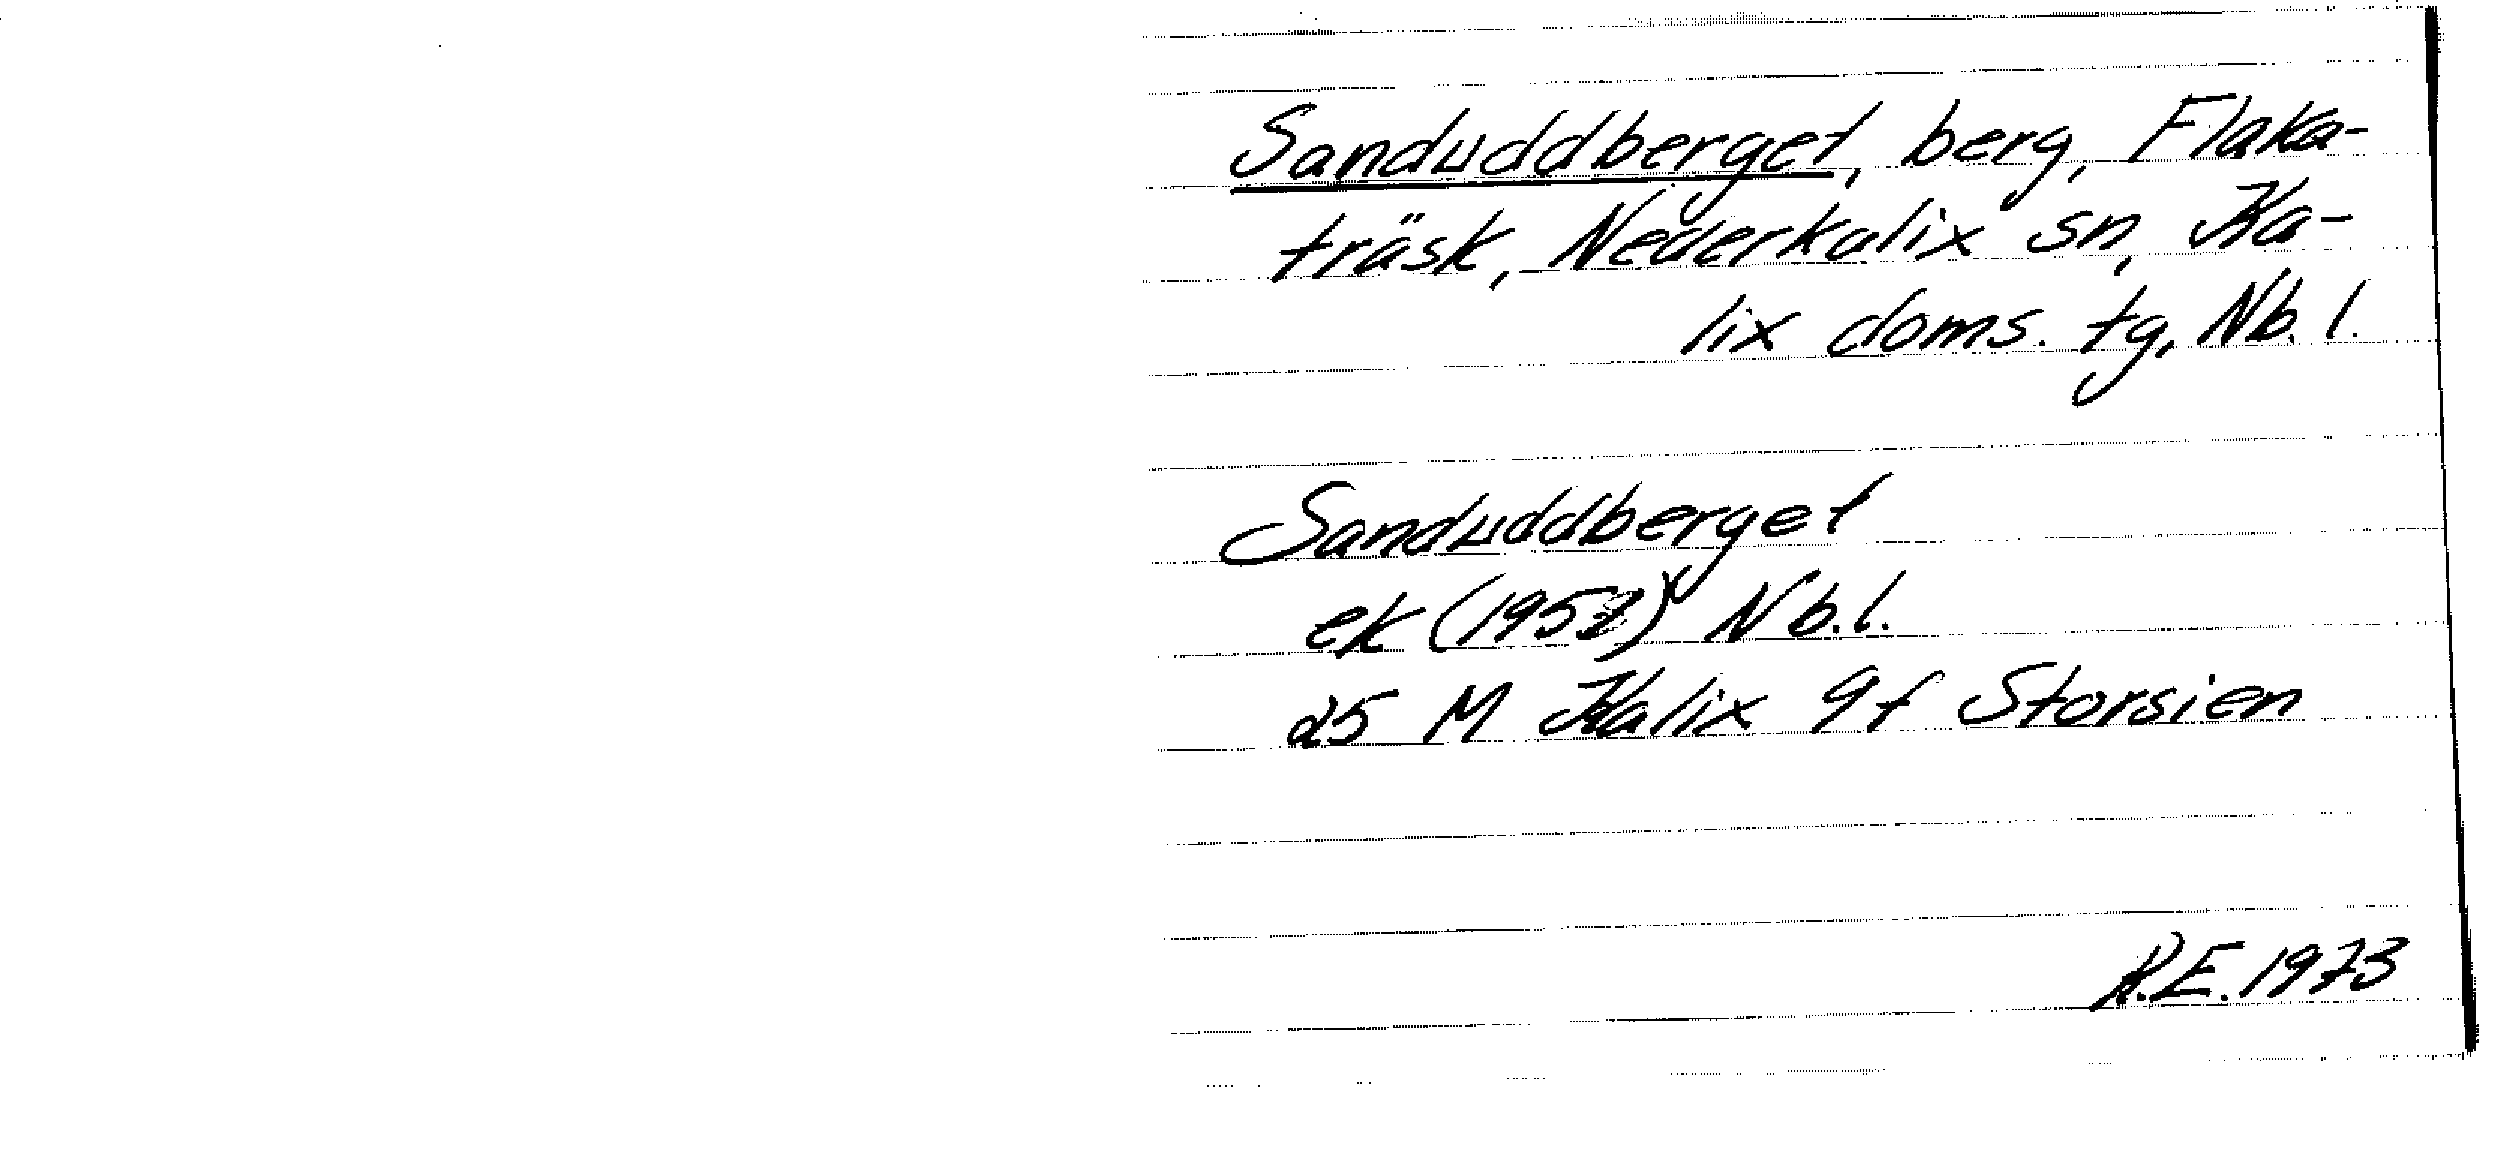 Sanduddberget, berg, Flaka-
träsk, Nederkalix sn, Ka-
lix doms. tg, Nb. l.
Sanduddberget
ek Nb. l.
25 M Kalix 9f Storsien
R.E. 1973